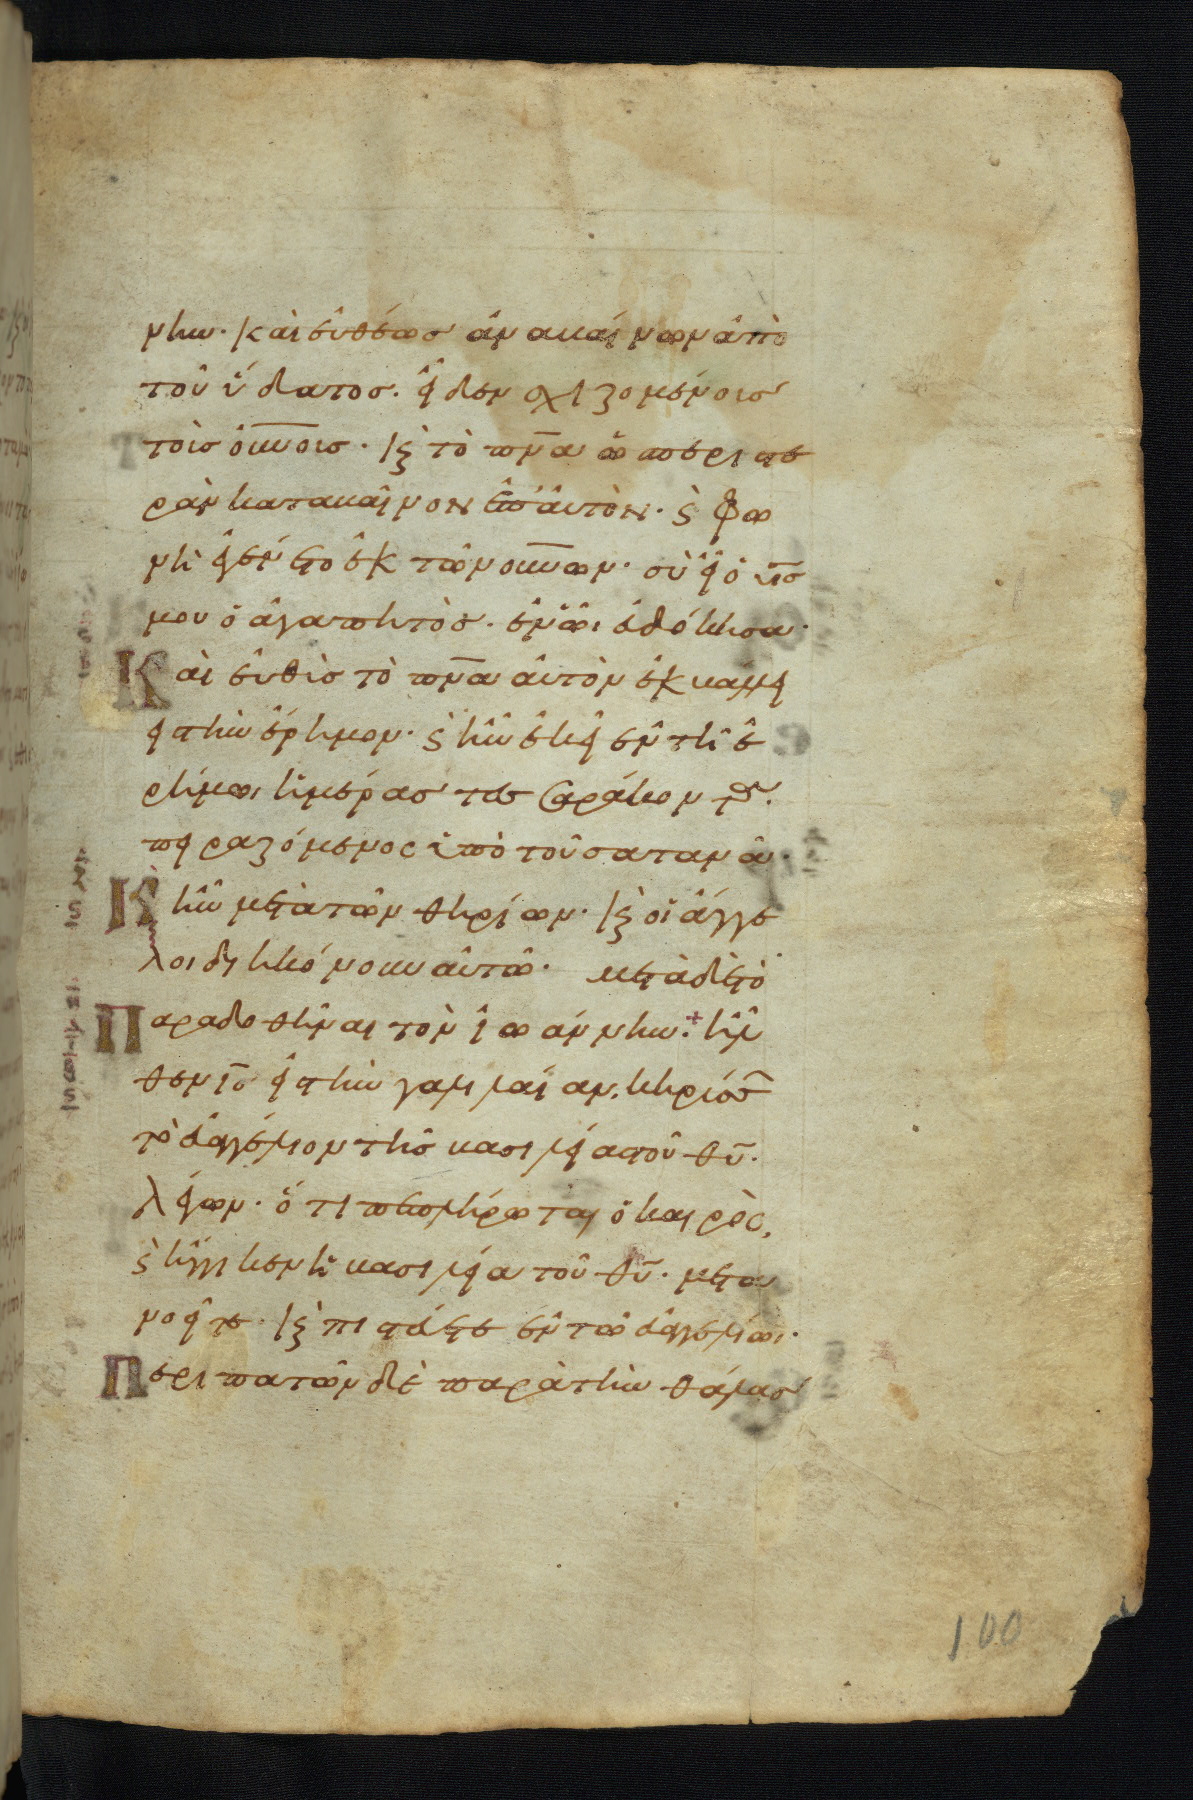 νην· και ευθέως ἀναβαίνων ἀπὸ
τοῦ ὕδατος. εἶδεν σχιζομένους
τοὺς οὐνους· κ̀ τὸ πνα ὡς περιστε
ρὰν καταβαῖνον ἐπ᾽ αὐτὸν· κ̀ φω
νὴ ἐγένετο ἐκ τῶν ουνων· σὺ εἶ ὁ υς
μου ὁ ἀγαπητὸς. ἐν ᾧι εὐδόκησα·
Καὶ εὐθὺς τὸ πνα αὐτὸν ἐκβάλλει
εἰς τὴν ἔρημον· κ̀ ἦν ἐκεῖ ἐν τῆ ἐ
ρήμωι ἡμέρας τεσσαράκοντα.
πειραζόμενος ὑπὸ τοῦ σατανᾶ·
Κ̀ ἦν μετὰ τῶν θηρίων· κ̀ οἱ ἄγγε
λοι διηκόνουν αὐτῶ· μετὰ δὲ τὸ
Παραδοθῆναι τὸν ἰωάννην·+ ἦλ
θεν ις εἰς τὴν γαλιλαίαν. κηρύσς
τὸ εὐαγγέλιον τῆς βασιλείας τοῦ θυ·
λέγων· ὅτι πεπλήρωται ὁ καιρὸς.
κ̀ ἤγγικεν ἡ βασιλεία τοῦ θυ· μετα
νοεῖτε· κ̀ πιστεύετε ἐν τῶ εὐαγγελίωι·
Περιπατῶν δὲ παρὰ τὴν θάλασ
100